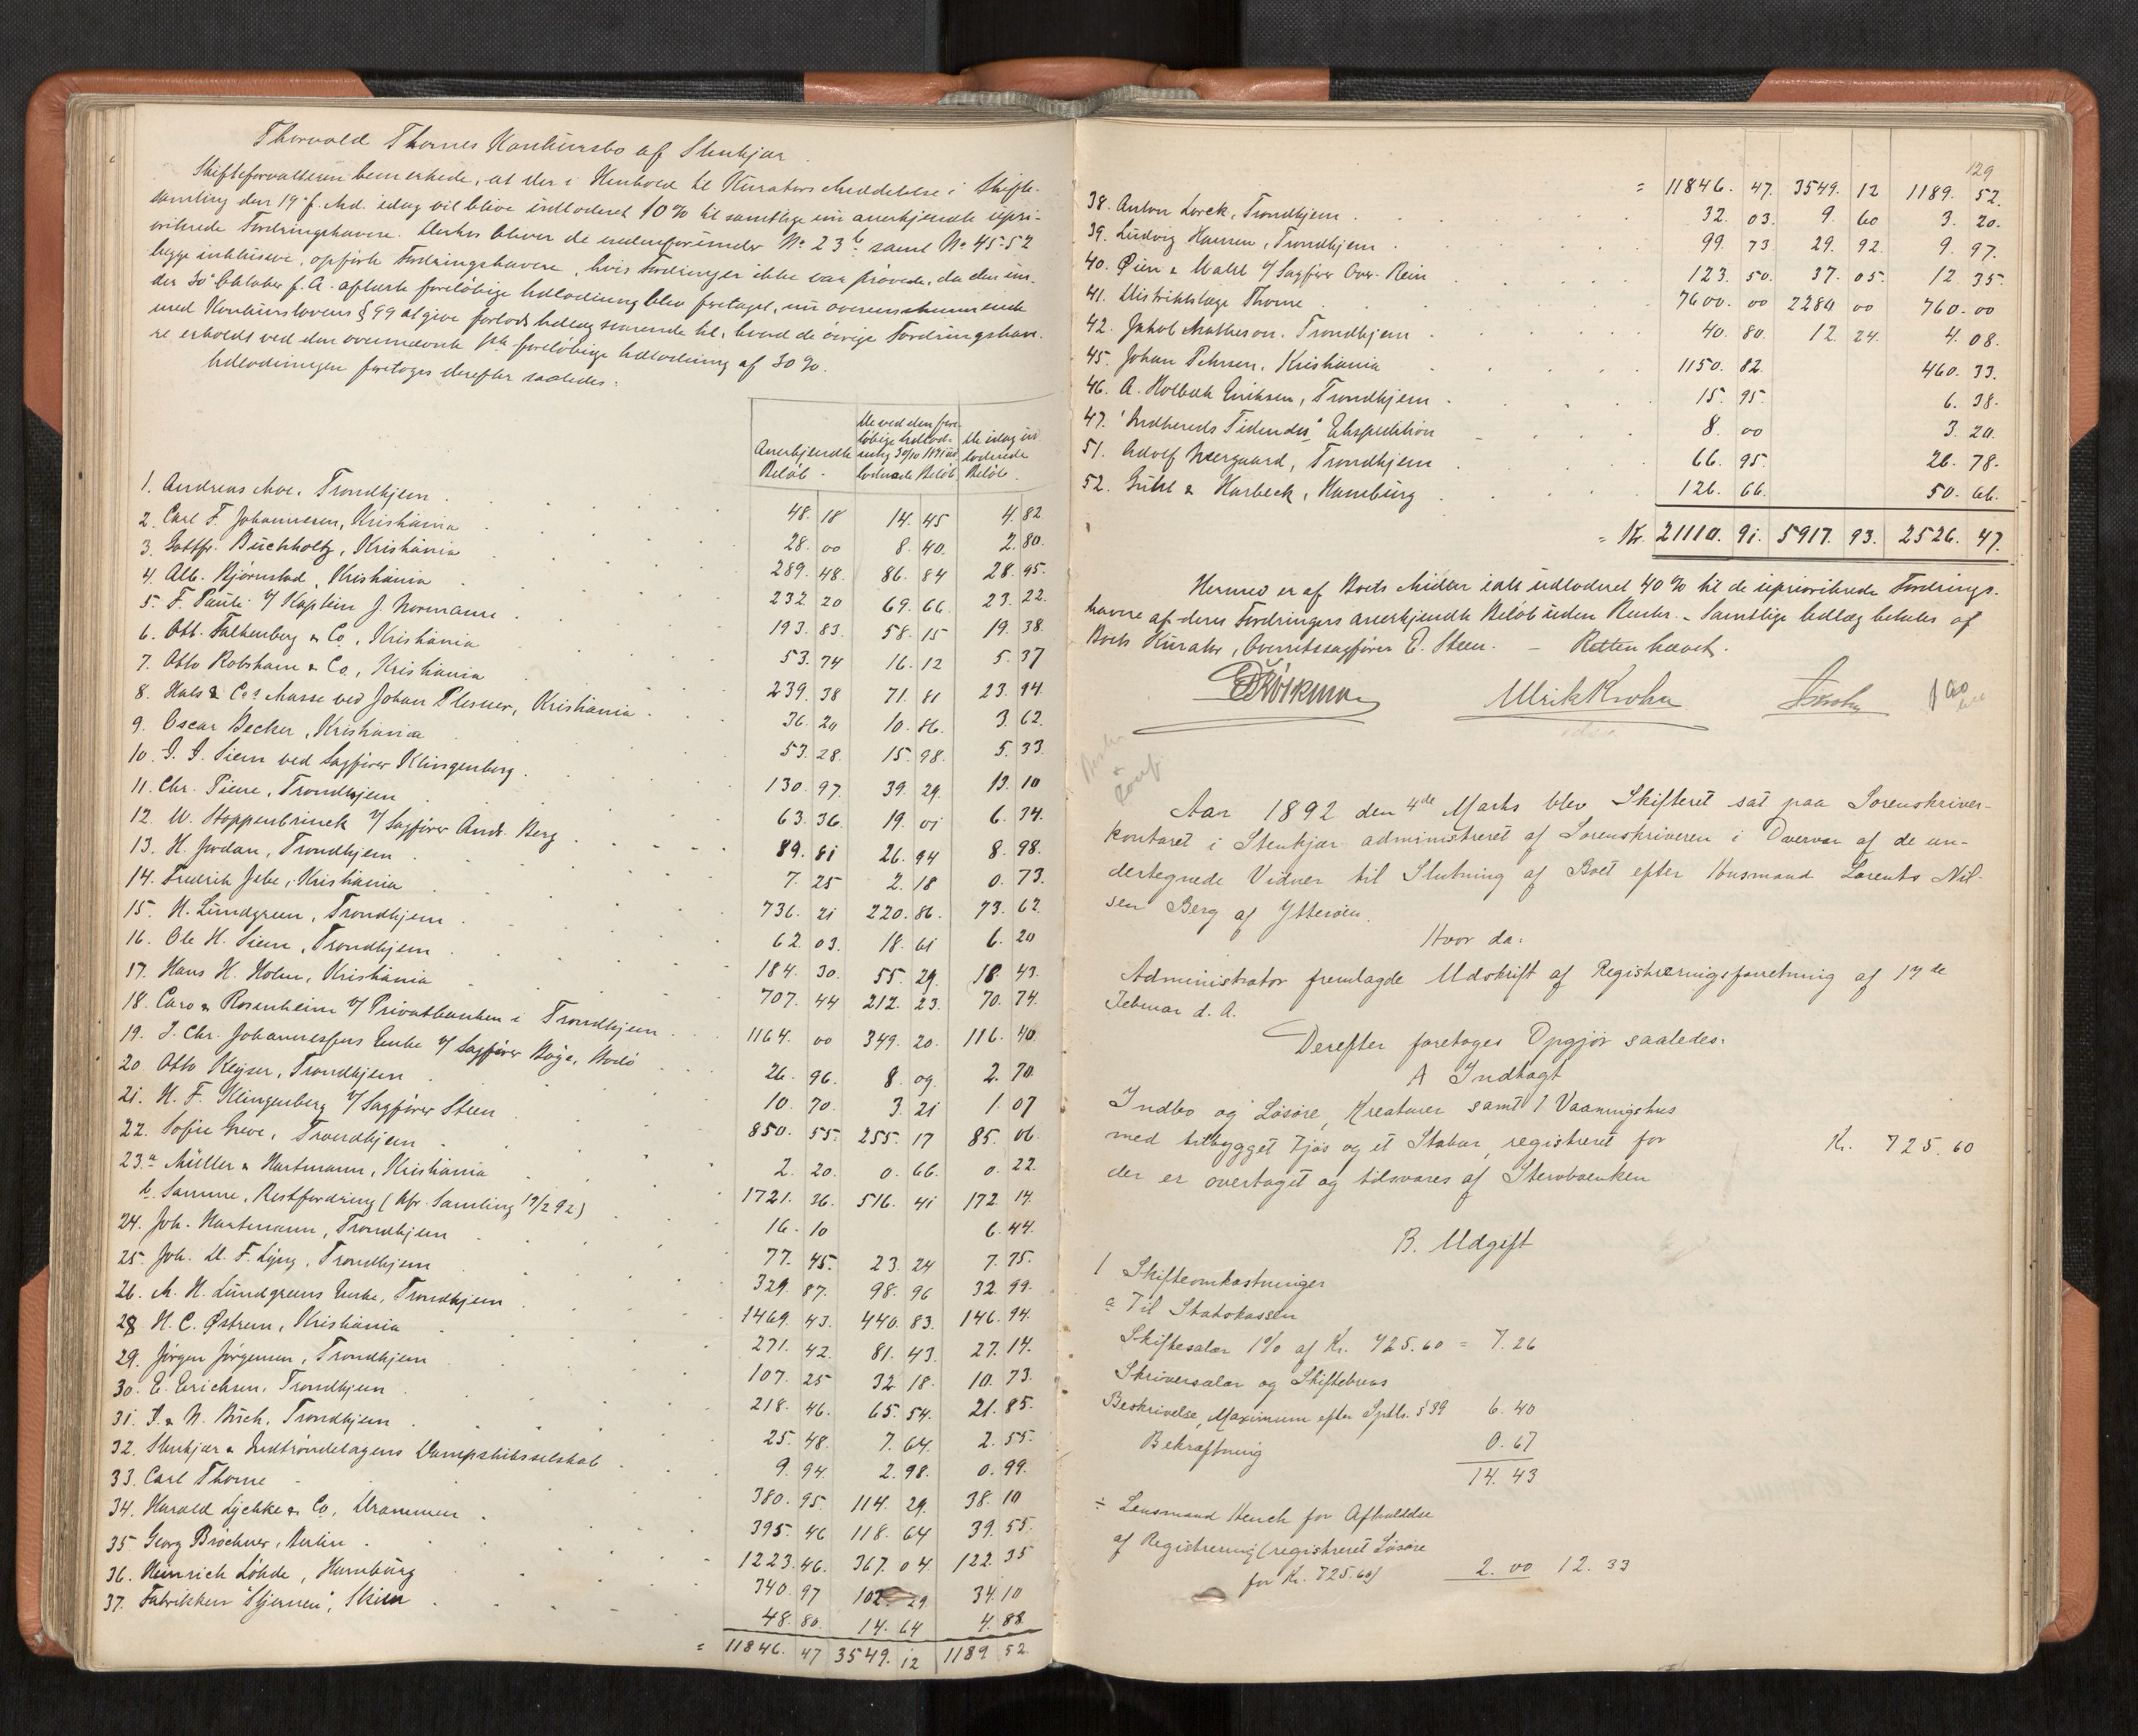 Thorvald Thornes Konkursbo af Stenkjær.
Skifteforvalteren bemerkede, at der i Henhold til Kurators Meddelelse i Skifte-
samling den 19de f. Md. idag vil blive udloddet 10% til samtlige nu anerkjendte upri-
oriterede Fordringshavere. Derhos bliver de nedenfor under No 23b samt No 45-52
begge inklusive, opførte Fordringshavere, hvis Fordringer ikke var prøvede, da den un-
der 30te Oktober f. A. afslutte foreløbige Udlodning blev foretaget, nu overensstemmende
med Konkurslovens § 99 at give forlods Udlæg svarende til, hvad de øvrige Fordringshave-
re erholdt ved den ovennævnte foreløbige Udlodning af 30%.
Udlodningen foretoges derefter saaledes:
Anerkjendte Beløb. De ved den foreløbige Udlodning 30/10 1891 udloddede Beløb. De idag udloddede Beløb.
1. Andreas Moe, Trondhjem 48. 18 14. 45 4. 82
2. Carl F. Johannesen, Kristiania 28. 00 8. 40. 2. 80.
3. Gottfr. Buchholtz, Kristiania 289. 48. 86. 84 28. 95.
4. Alb. Bjørnstad, Kristiania 232. 20 69. 66. 23. 22.
5. F. Pauli v/ Kaptein J. Normann 193. 83. 58. 15 19. 38.
6. Ott. Falkenberg & Co, Kristiania 53. 74 16. 12 5. 37
7. Otto Robsham & Co., Kristiania 239. 38 71. 81 23. 94.
8. Hals & Cos Masse ved Johan Plesner, Kristiania 36. 20 10. 86. 3. 62.
9. Oscar Becker, Kristiania 53. 28. 15. 98. 5. 33.
10. I. I. Siem ved Sagfører Klingenberg. 130. 97. 39. 29. 13. 10
11. Chr. Piene, Trondhjem 63. 36. 19. 01 6. 34.
12. W. Stoppenbrinck v/ Sagfører Andr. Berg 89. 81 26. 94 8. 98.
13. H. Jordan, Trondhjem 7. 25 2. 18 0. 73.
14. Fredrik Jebe, Kristiania 736. 21 220. 86. 73. 62
15. N. Lundgreen, Trondhjem 62. 03. 18. 61 6. 20
16. Ole H. Siem, Trondhjem 184. 30. 55. 29. 18. 43.
17. Hans H. Holm, Kristiania 707. 44 212. 23. 70. 74.
18. Caro & Rosenheim v/ Privatbanken i Trondhjem 1164. 00 349. 20. 116. 40
19. J. Chr. Johannessens Enke v/ Sagfører Bøge, Bodø 26. 96. 8. 09. 2. 70
20. Otto Keyser, Trondhjem 10. 70. 3. 21 1. 07
21. H. F. Klingenberg v/ Sagfører Steen 850. 55. 255. 17 85. 06.
22. Sofie Greve, Trondhjem 2. 20. 0. 66. 0. 22.
23.a Müller & Hartmann, Kristiania 1721. 36. 516. 41 172. 14.
b. Samme, Restfordring (kfr. Samling 19/2 92) 16. 10 6. 44.
24. Joh. Hartmann, Trondhjem 77. 45. 23. 24 7. 75.
25. Joh. D. F. Lyng, Trondhjem 329. 87. 98. 96 32. 99.
26. M. H. Lundgreens Enke, Trondhjem 1469. 43. 440. 83. 146. 94.
28 H. C. Østrem, Kristiania 271. 42. 81. 43. 27. 14.
29. Jørgen Jørgensen, Trondhjem 107. 25 32. 18. 10. 73.
30. E. Erichsen, Trondhjem 218. 46. 65. 54. 21. 85.
31. I. & N. Buch, Trondhjem 25. 48. 7. 64. 2. 55.
32. Stenkjær & Indtrøndelagens Dampskibsselskab 9. 94. 2. 98. 0. 99.
33. Carl Thorne 380. 95. 114. 29. 38. 10
34. Harald Lyche & Co, Drammen 395. 46 118. 64 39. 55.
35 Georg Brøchner, Berlin 1223. 46. 367. 04. 122. 35
36. Heinrich Löhde, Hamburg 340. 97 102. 29. 34. 10
37. Fabrikken "Stjernen", Skien 48. 80. 14. 64 4. 88.
= 11846. 47 3549. 12 1189 52.
129
= 11846. 47. 3549. 12 1189. 52.
38. Anton Lorck, Trondhjem 32. 03. 9. 60 3. 20.
39. Ludvig Hansen, Trondhjem 99. 73 29. 92. 9. 97.
40. Øien & Wahl v/ Sagfører Ovr. Rein 123. 50. 37. 05. 12. 35.
41. Distriktslæge Thorne 7600. 00 2280 00 760. 00
42. Jakob Matheson, Trondhjem 40. 80. 12. 24. 4. 08.
45. Johan Petersen, Kristiania 1150. 82. 460. 33.
46. A. Holbæk Eriksen, Trondhjem 15. 95. 6. 38.
47. "Indhereds Tidende's" Ekspedition 8. 00 3. 20.
51. Adolf Neergaard, Trondhjem 66. 95. 26. 78.
52. Gühl & Harbeck, Hamburg 126. 66. 50. 66.
= Kr. 21110. 91. 5917. 93. 2526. 47.
Hermed er af Boets Midler ialt udloddet 40% til de uprioriterede Fordrings-
havere af deres Fordringers anerkjendte Beløb uden Renter. – Samtlige Udlæg betales af
Boets Kurator, Overretssagfører E. Steen. – Retten hævet.
Ulrik Krohn
Aar 1892 den 4de Marts blev Skifteret sat paa Sorenskriver-
kontoret i Stenkjær administreret af Sorenskriveren i Overvær af de un-
dertegnede Vidner til Slutning af Boet efter Husmand Lorents Nil-
sen Berg af Ytterøen.
Hvor da:
Administrator fremlagde Udskrift af Registreringsforretning af 17de
Februar d. A.
Derefter foretoges Opgjør saaledes:
A Indtægt
Indbo og Løsøre, Kreaturer samt 1 Vaaningshus
med tilbygget Fjøs og et Stabur, registreret for Kr. 725.60
der er overtaget og tilsvares af Stervboenken
B. Udgift
1 Skifteomkostninger
a Til Statskassen
Skiftesalær 1% af Kr. 725.60 = 7.26
Skriversalær og Skiftebrevs
Beskrivelse, Maximum efter Sptls. § 39 6.40
Bekræftning 0.67
14.43
÷ Lensmand Hench for Afholdelse
af Registrering (registreret Løsøre
for Kr. 725.60) 2.00 12.33